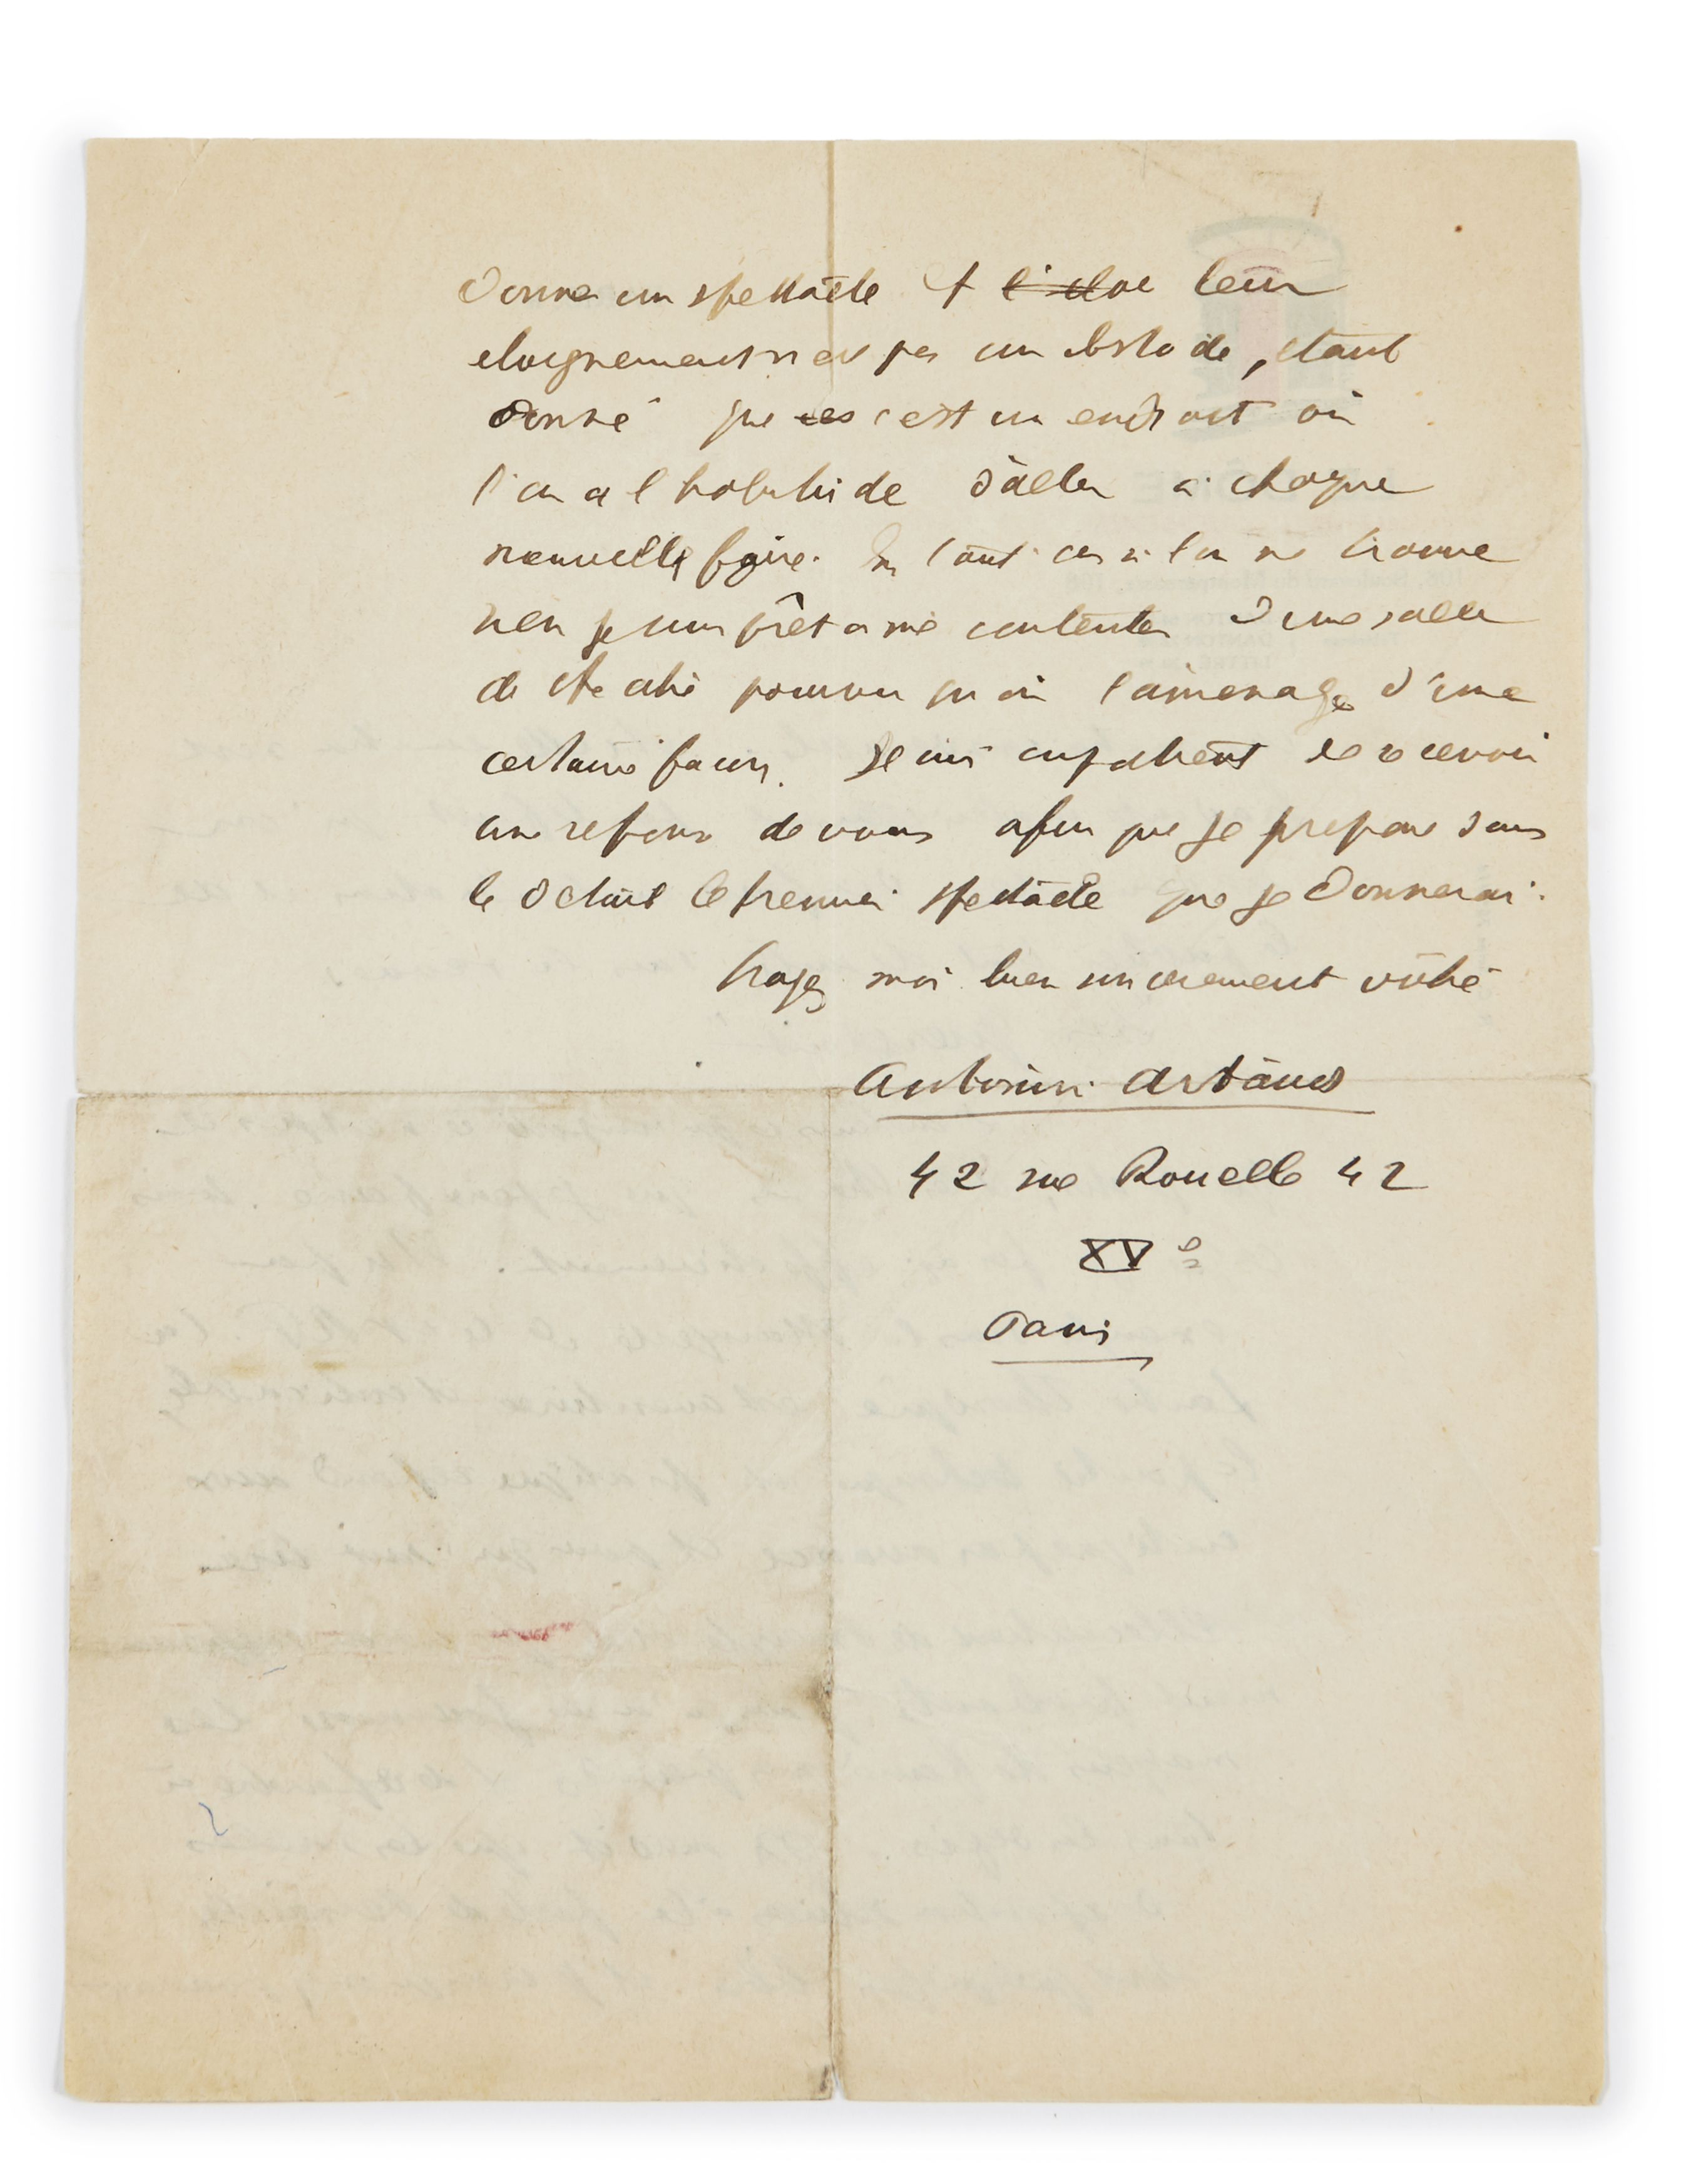 donner un spectacle et l'eloe leur
eloignement n'est pas un obstacle, etant
donné que ces c'est un endroit où
l'on a l'habitude d'aller à chaque
nouvelle foire. En tout cas si l'on ne trouve
rien je suis prêt à me contenter d'une salle
de théatre pourvu qu'on l'amenage d'une
certaine facon. Je suis impatient de recevoir
une reponse de vous afin que je prepare dans
le detail le premier spectacle que je donnerai.
Croyez moi bien sincerement vôtre
Antonin Artaud
42 rue Rouelle 42
XVe
Paris